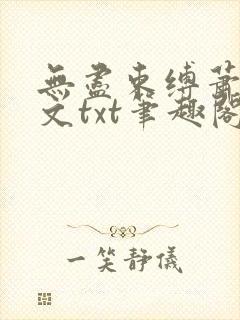 無盡束縛蕭
文txt筆趣閣
一笑靜儀